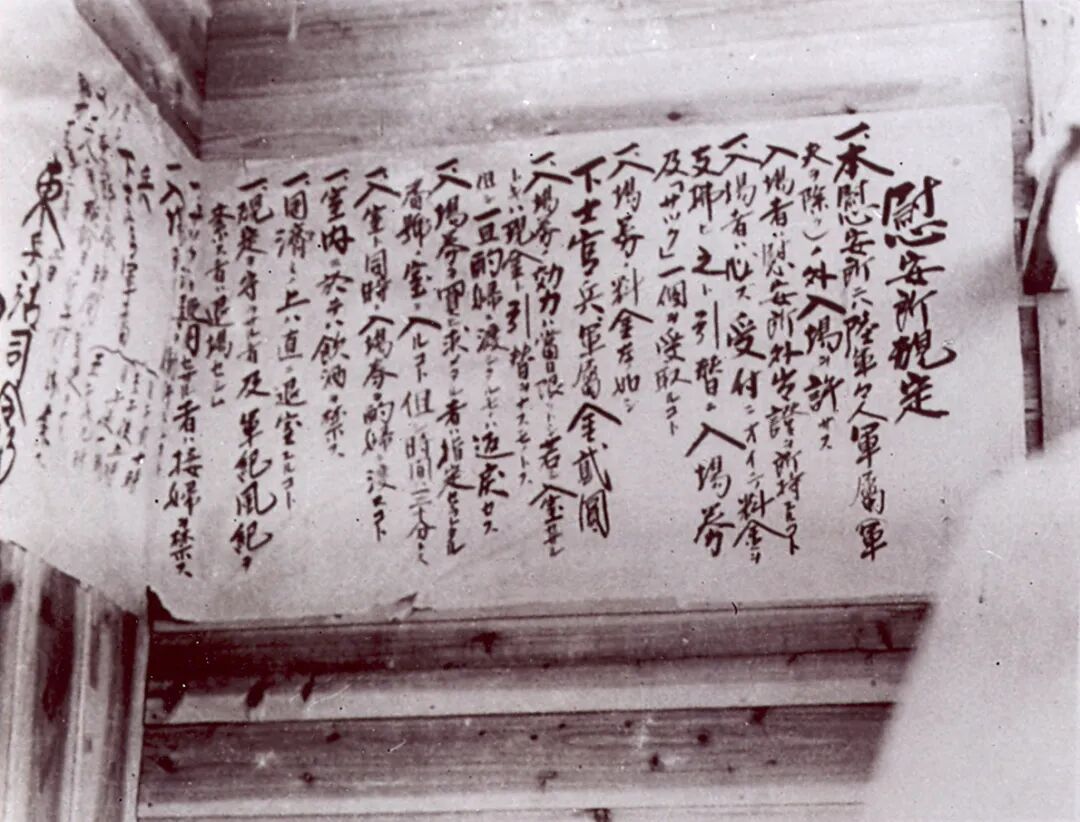 慰安所規定
一、本慰安所ニハ陸軍々人軍属(軍
夫ヲ除ク)ノ外入場ヲ許サス
入場者ハ慰安所外出證ヲ所持スルコト
一、入場者ハ必ス受付ニオイテ料金ヲ
支拂ヒ之ト引替ニ入場券
及「サック」一個ヲ受取ルコト
一、入場券ノ料金左ノ如シ
下士官、兵、軍属金貳圓
一、入場券ノ効力ハ當日限リトシ若シ入室セサル
トキハ現金ト引替ヲナスモノトス
但シ一旦酌婦ニ渡シタルモノハ返戻セス
一、入場券ヲ買ヒ求メタル者ハ指定セラレタル
番號ノ室ニ入ルコト但シ時間ハ三十分トス
一、入室ト同時ニ入場券ヲ酌婦ニ渡スコト
一、室内ニ於テハ飲酒ヲ禁ス
一、用済ミノ上ハ直ニ退室スルコト
一、規定ヲ守ラサル者及軍紀風紀ヲ
紊ス者ハ退場セシム
一、サックヲ使用セサル者ハ接婦ヲ禁ス
一、入場
東兵站司令部